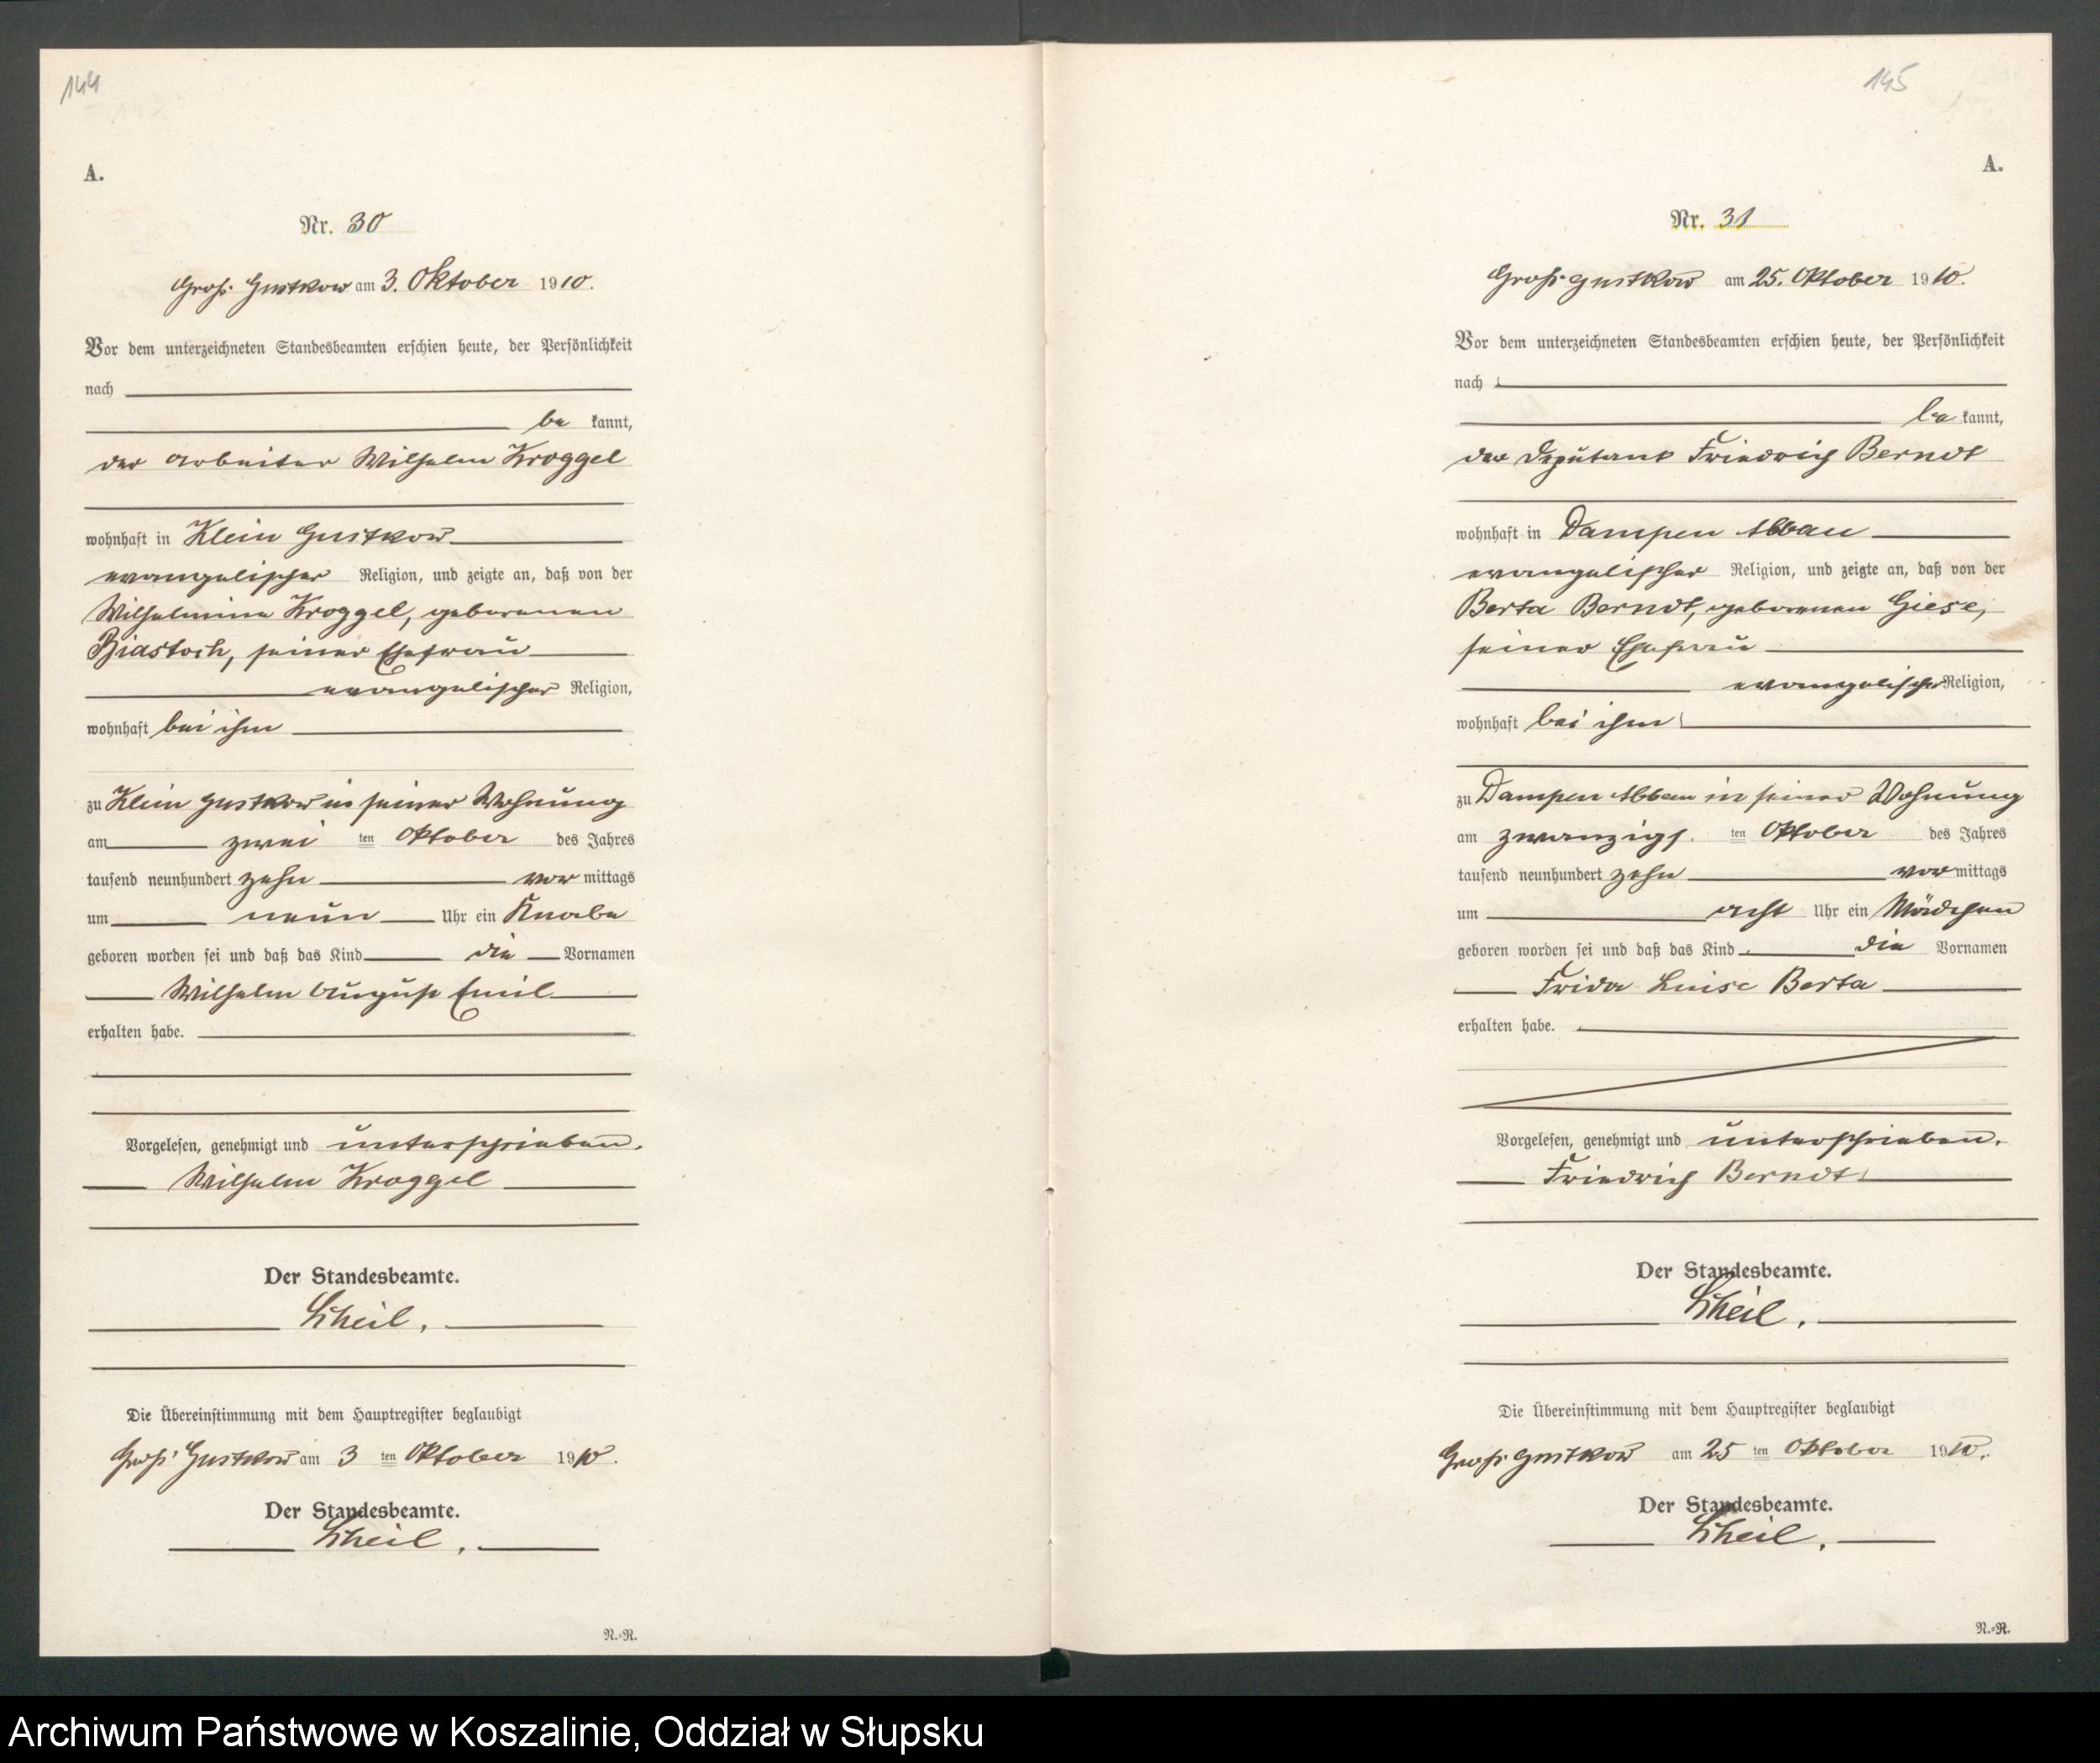 144
A.
Nr. 30
Groß Gustkow am 3. Oktober 1910.
Vor dem unterzeichneten Standesbeamten erschien heute, der Persönlichkeit
nach
be kannt,
der Arbeiter Wilhelm Kroggel
wohnhaft in Klein Gustkow
evangelischer Religion, und zeigte an, daß von der
Wilhelmine Kroggel, geborenen
Biastoch, seiner Ehefrau
evangelischer Religion,
wohnhaft bei ihm
zu Klein Gustkow in seiner Wohnung
am zwei ten Oktober des Jahres
tausend neunhundert zehn vor mittags
um neun Uhr ein Knabe
geboren worden sei und daß das Kind die Vornamen
Wilhelm August Emil
erhalten habe.
Vorgelesen, genehmigt und unterschrieben.
Wilhelm Kroggel
Der Standesbeamte.
Scheil.
Die Übereinstimmung mit dem Hauptregister beglaubigt
Groß Gustkow am 3 ten Oktober 1910.
Der Standesbeamte.
Scheil.
N.=R.
145
A.
Nr. 31
Groß Gustkow am 25. Oktober 1910.
Vor dem unterzeichneten Standesbeamten erschien heute, der Persönlichkeit
nach
be kannt,
der Deputant Friedrich Berndt
wohnhaft in Dampen Abbau
evangelischer Religion, und zeigte an, daß von der
Berta Berndt, geborenen Giese,
seiner Ehefrau
evangelischer Religion,
wohnhaft bei ihm
zu Dampen Abbau in seiner Wohnung
am zwanzigs ten Oktober des Jahres
tausend neunhundert zehn vor mittags
um acht Uhr ein Mädchen
geboren worden sei und daß das Kind die Vornamen
Frida Luise Berta
erhalten habe.
Vorgelesen, genehmigt und unterschrieben.
Friedrich Berndt
Der Standesbeamte.
Scheil.
Die Übereinstimmung mit dem Hauptregister beglaubigt
Groß Gustkow am 25 ten Oktober 1910.
Der Standesbeamte.
Scheil.
N.=R.
Archiwum Państwowe w Koszalinie, Oddział w Słupsku